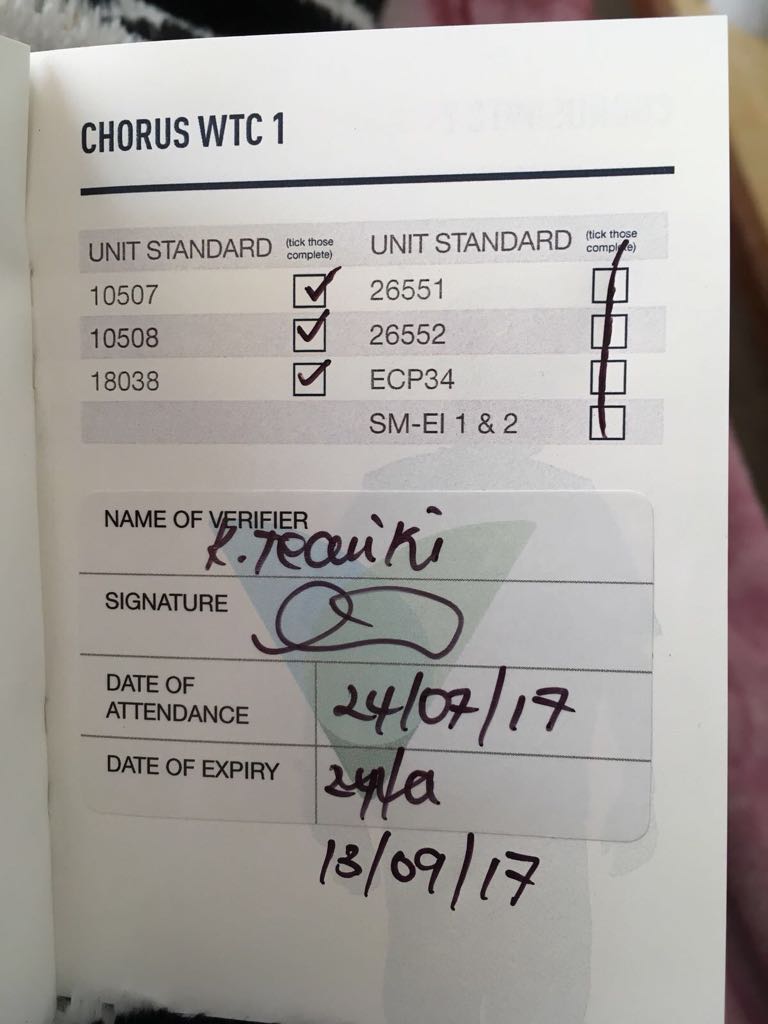 CHORUS WTC 1
UNIT STANDARD (tick those complete) UNIT STANDARD (tick those complete)
10507 26551
10508 26552
18038 ECP34
SM-EI 1 & 2
NAME OF VERIFIER
R. Teariki
SIGNATURE
DATE OF ATTENDANCE 24/07/17
DATE OF EXPIRY
13/09/17